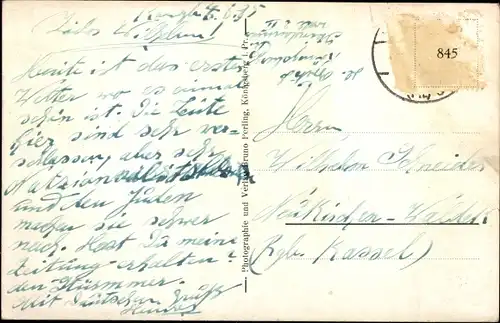 4.6.35
Lieber Wilhelm!
Heute ist das erste
Wetter wo es einmal
schön ist. Die Leute
hier sind sehr ver-
schlossen, aber sehr
und den Juden
machen sie schwer
nach. Hast Du meine
Zeitung erhalten?
den Stürmmer.
Mit deutschem Gruß
Photographie und Verlag Bruno Perling, Königsberg i. Pr.
845
Herrn
Wilhelm Schneider
Neukirchen
(Bz. Kassel)